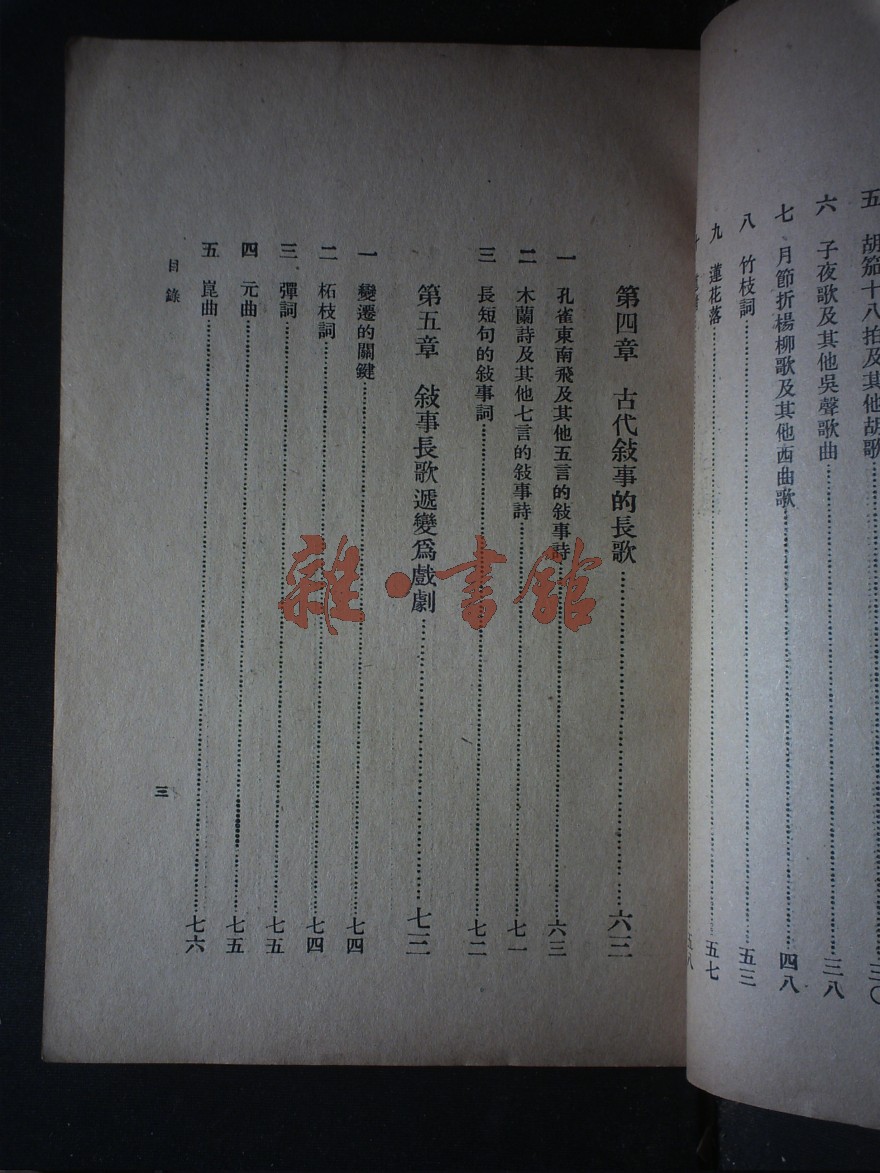 五　胡笳十八拍及其他胡歌……三〇
六　子夜歌及其他吳聲歌曲……三八
七　月節折楊柳歌及其他西曲歌……四八
八　竹枝詞……五三
九　蓮花落……五七
五八
第四章　古代敍事的長歌……六三
一　孔雀東南飛及其他五言的敍事詩……六三
二　木蘭詩及其他七言的敍事詩……七一
三　長短句的敍事詞……七二
第五章　敍事長歌遞變爲戲劇……七三
一　變遷的關鍵……七四
二　柘枝詞……七四
三　彈詞……七五
四　元曲……七五
五　崑曲……七六
目錄
三
雜·書館